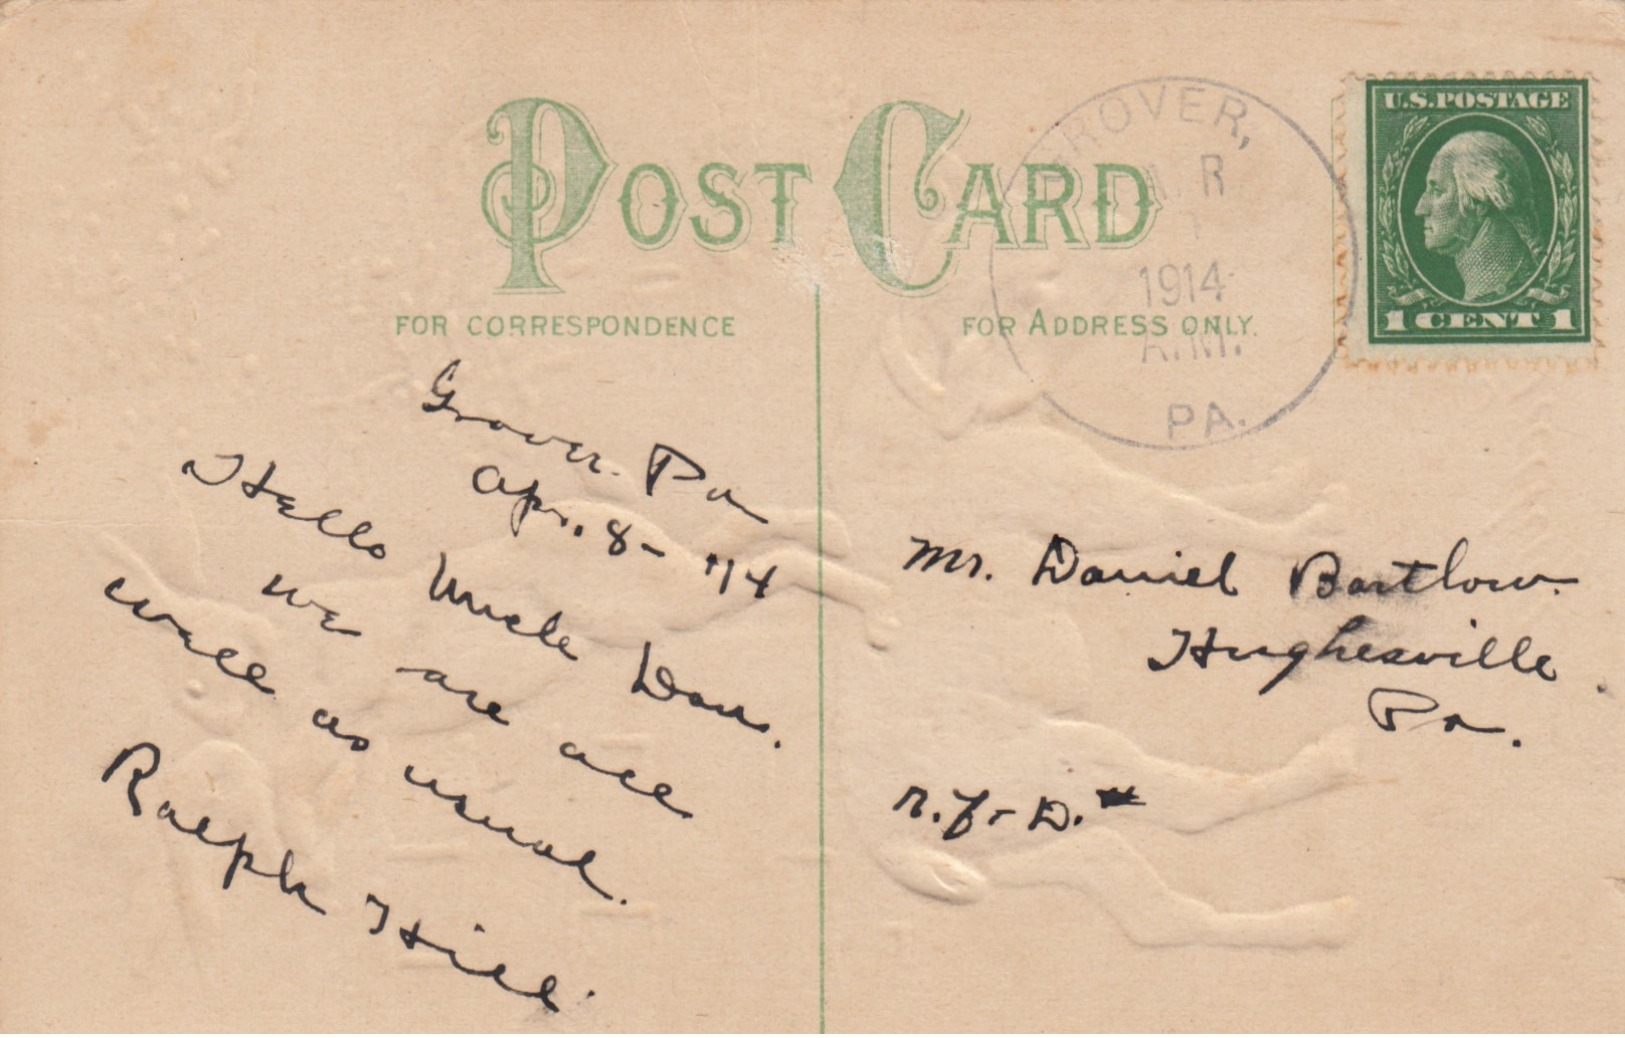 POST CARD
FOR CORRESPONDENCE
FOR ADDRESS ONLY.
GROVER,
1914
A.M.
PA.
U.S. POSTAGE
1 CENT 1
Grover. Pa
Apr. 8 - '14
Hello Uncle Dan.
we are all
well as usual.
Ralph Hill.
Mr. Daniel Bartlow.
Hughesville.
Pa.
R. F. D.